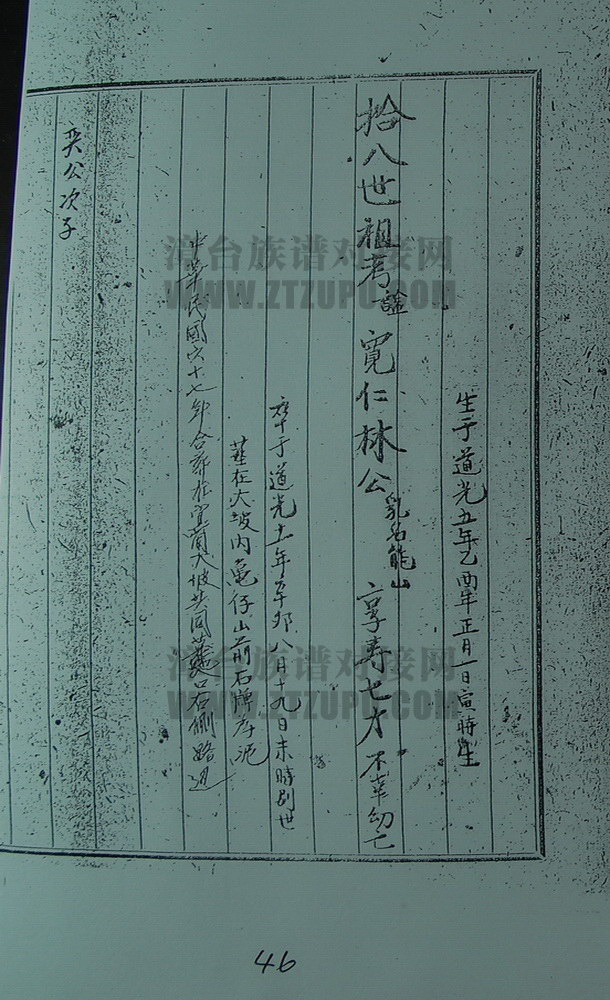 生于道光五年乙酉年正月一日寅時生
拾八世祖考諡寬仁林公乳名能山 享壽七才不幸幼亡
卒于道光十一年辛卯八月十九日未時別世
葬在大坡內龜仔山前石牌
中華民國六十七年合葬於宜蘭大坡共同墓 右側路邊
奕公次子
46
漳台族谱对接网
WWW.ZTZUPU.COM
漳台族谱对接网
WWW.ZTZUPU.COM